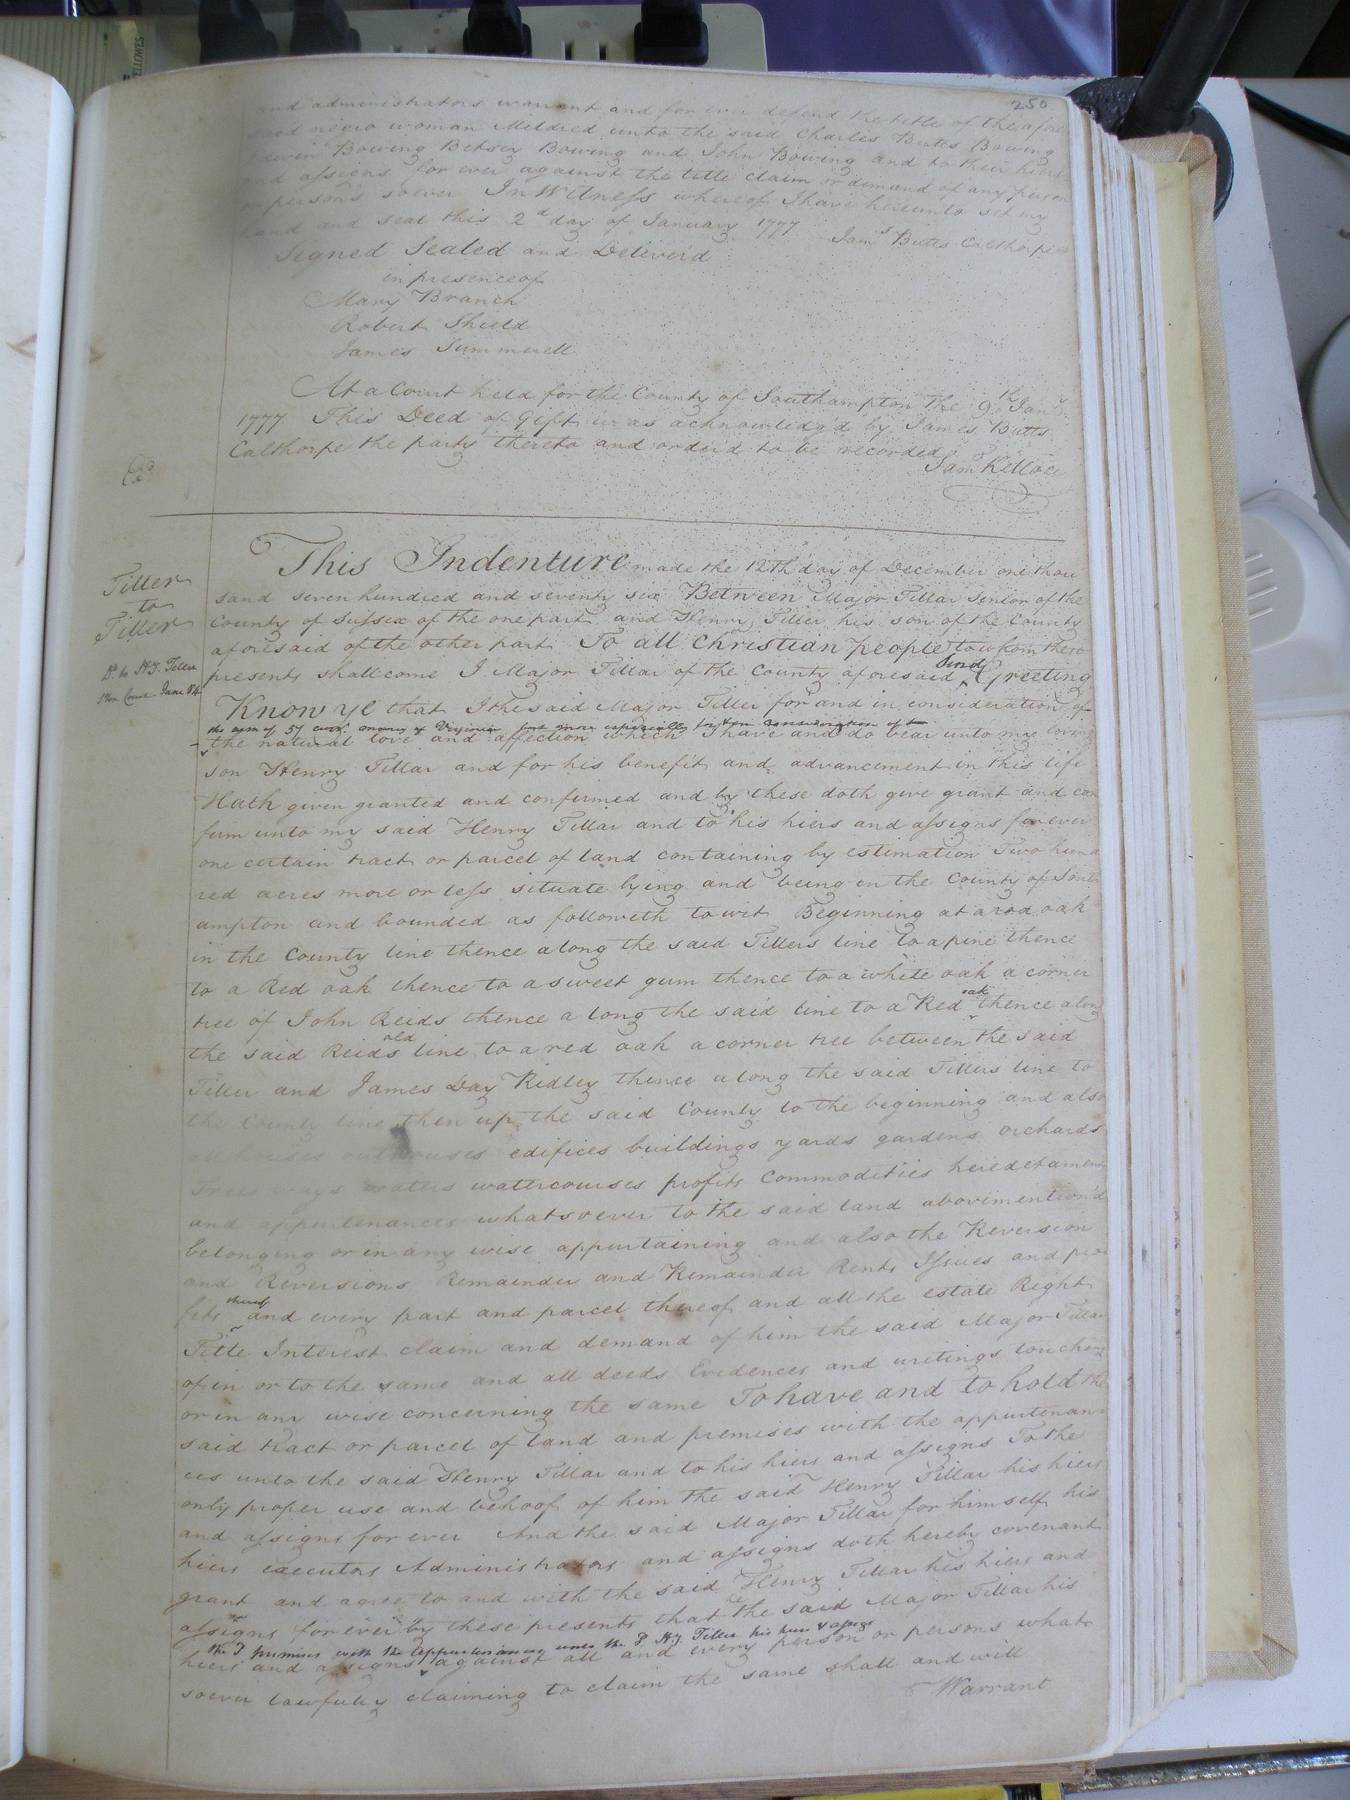 250
and administrators warrant and for ever defend the title of the afore
said negro woman Mildred unto the said Charles Butts Bowing
Bowing Betsey Bowing and John Bowing and to their hiers
and assigns for ever against the title claim or demand of any person
or persons soever In Witness whereof I have hereunto set my
hand and seal this 2d day of January 1777 Jams Butts Calthorpe
Signed Sealed and Deliver'd
in presence of
Mary Branch
Robert Shield
James Summerell
At a Court held for the County of Southampton the 9th Jany
1777 This Deed of Gift was acknowledg'd by James Butts
Calthorpe the party thereto and order'd to be recorded
Saml Kello
This Indenture made the 12th day of December one thou
sand seven hundred and seventy six Between Major Tillar Senior of the
Tiller
to
Tiller
County of Sussex of the one part and Henry Tiller his son of the County
aforesaid of the other part To all Christian people to whom these
Dd. to H.y. Tiller
Court June 84
presents shall come I Major Tillar of the County aforesaid send Greeting
Know ye that I the said Major Tiller for and in consideration of
the sum of 5/ curt. money of Virginia but more especially for the consideration of
the natural love and affection which I have and do bear unto my loving
son Henry Tillar and for his benefit and advancement in this life
Hath given granted and confirmed and by these doth give grant and con
firm unto my said Henry Tillar and to his hiers and assigns forever
one certain tract or parcel of land containing by estimation Two hund
red acres more or less situate lying and being in the County of South
ampton and bounded as followeth to wit Beginning at a red oak
in the County line thence along the said Tillers line to a pine thence
to a Red oak thence to a sweet gum thence to a white oak a corner
tree of John Reids thence along the said line to a Red oak thence along
the said Reids old line to a red oak a corner tree between the said
Tiller and James Day Ridley thence along the said Tillers line to
the County line then up the said County to the beginning and also
all houses outhouses edifices buildings yards gardens orchards
Trees ways waters watercourses profits Commodities heredetaments
and appurtenances whatsoever to the said land abovemention'd
belonging or in any wise appurtaining and also the Reversion
and Reversions Remainder and Remainder Rents Issues and pro
fits thereof and every part and parcel thereof and all the estate Right
Title Interest claim and demand of him the said Major Tillar
of in or to the same and all deeds Evidences and writings touching
or in any wise concerning the same To have and to hold the
said tract or parcel of land and premises with the appurtenan
ces unto the said Henry Tillar and to his hiers and assigns To the
only proper use and behoof of him the said Henry Tillar his hiers
and assigns for ever And the said Major Tillar for himself his
hiers executors Administrators and assigns doth hereby covenant
grant and agree to and with the said Henry Tillar his hiers and
assigns for ever by these presents that he the said Major Tillar his
the sd. premises with the appurtenances unto the sd. Hy. Tiller his heirs & assigns
hiers and assigns against all and every person or persons what
soever lawfully claiming to claim the same shall and will
Warrant